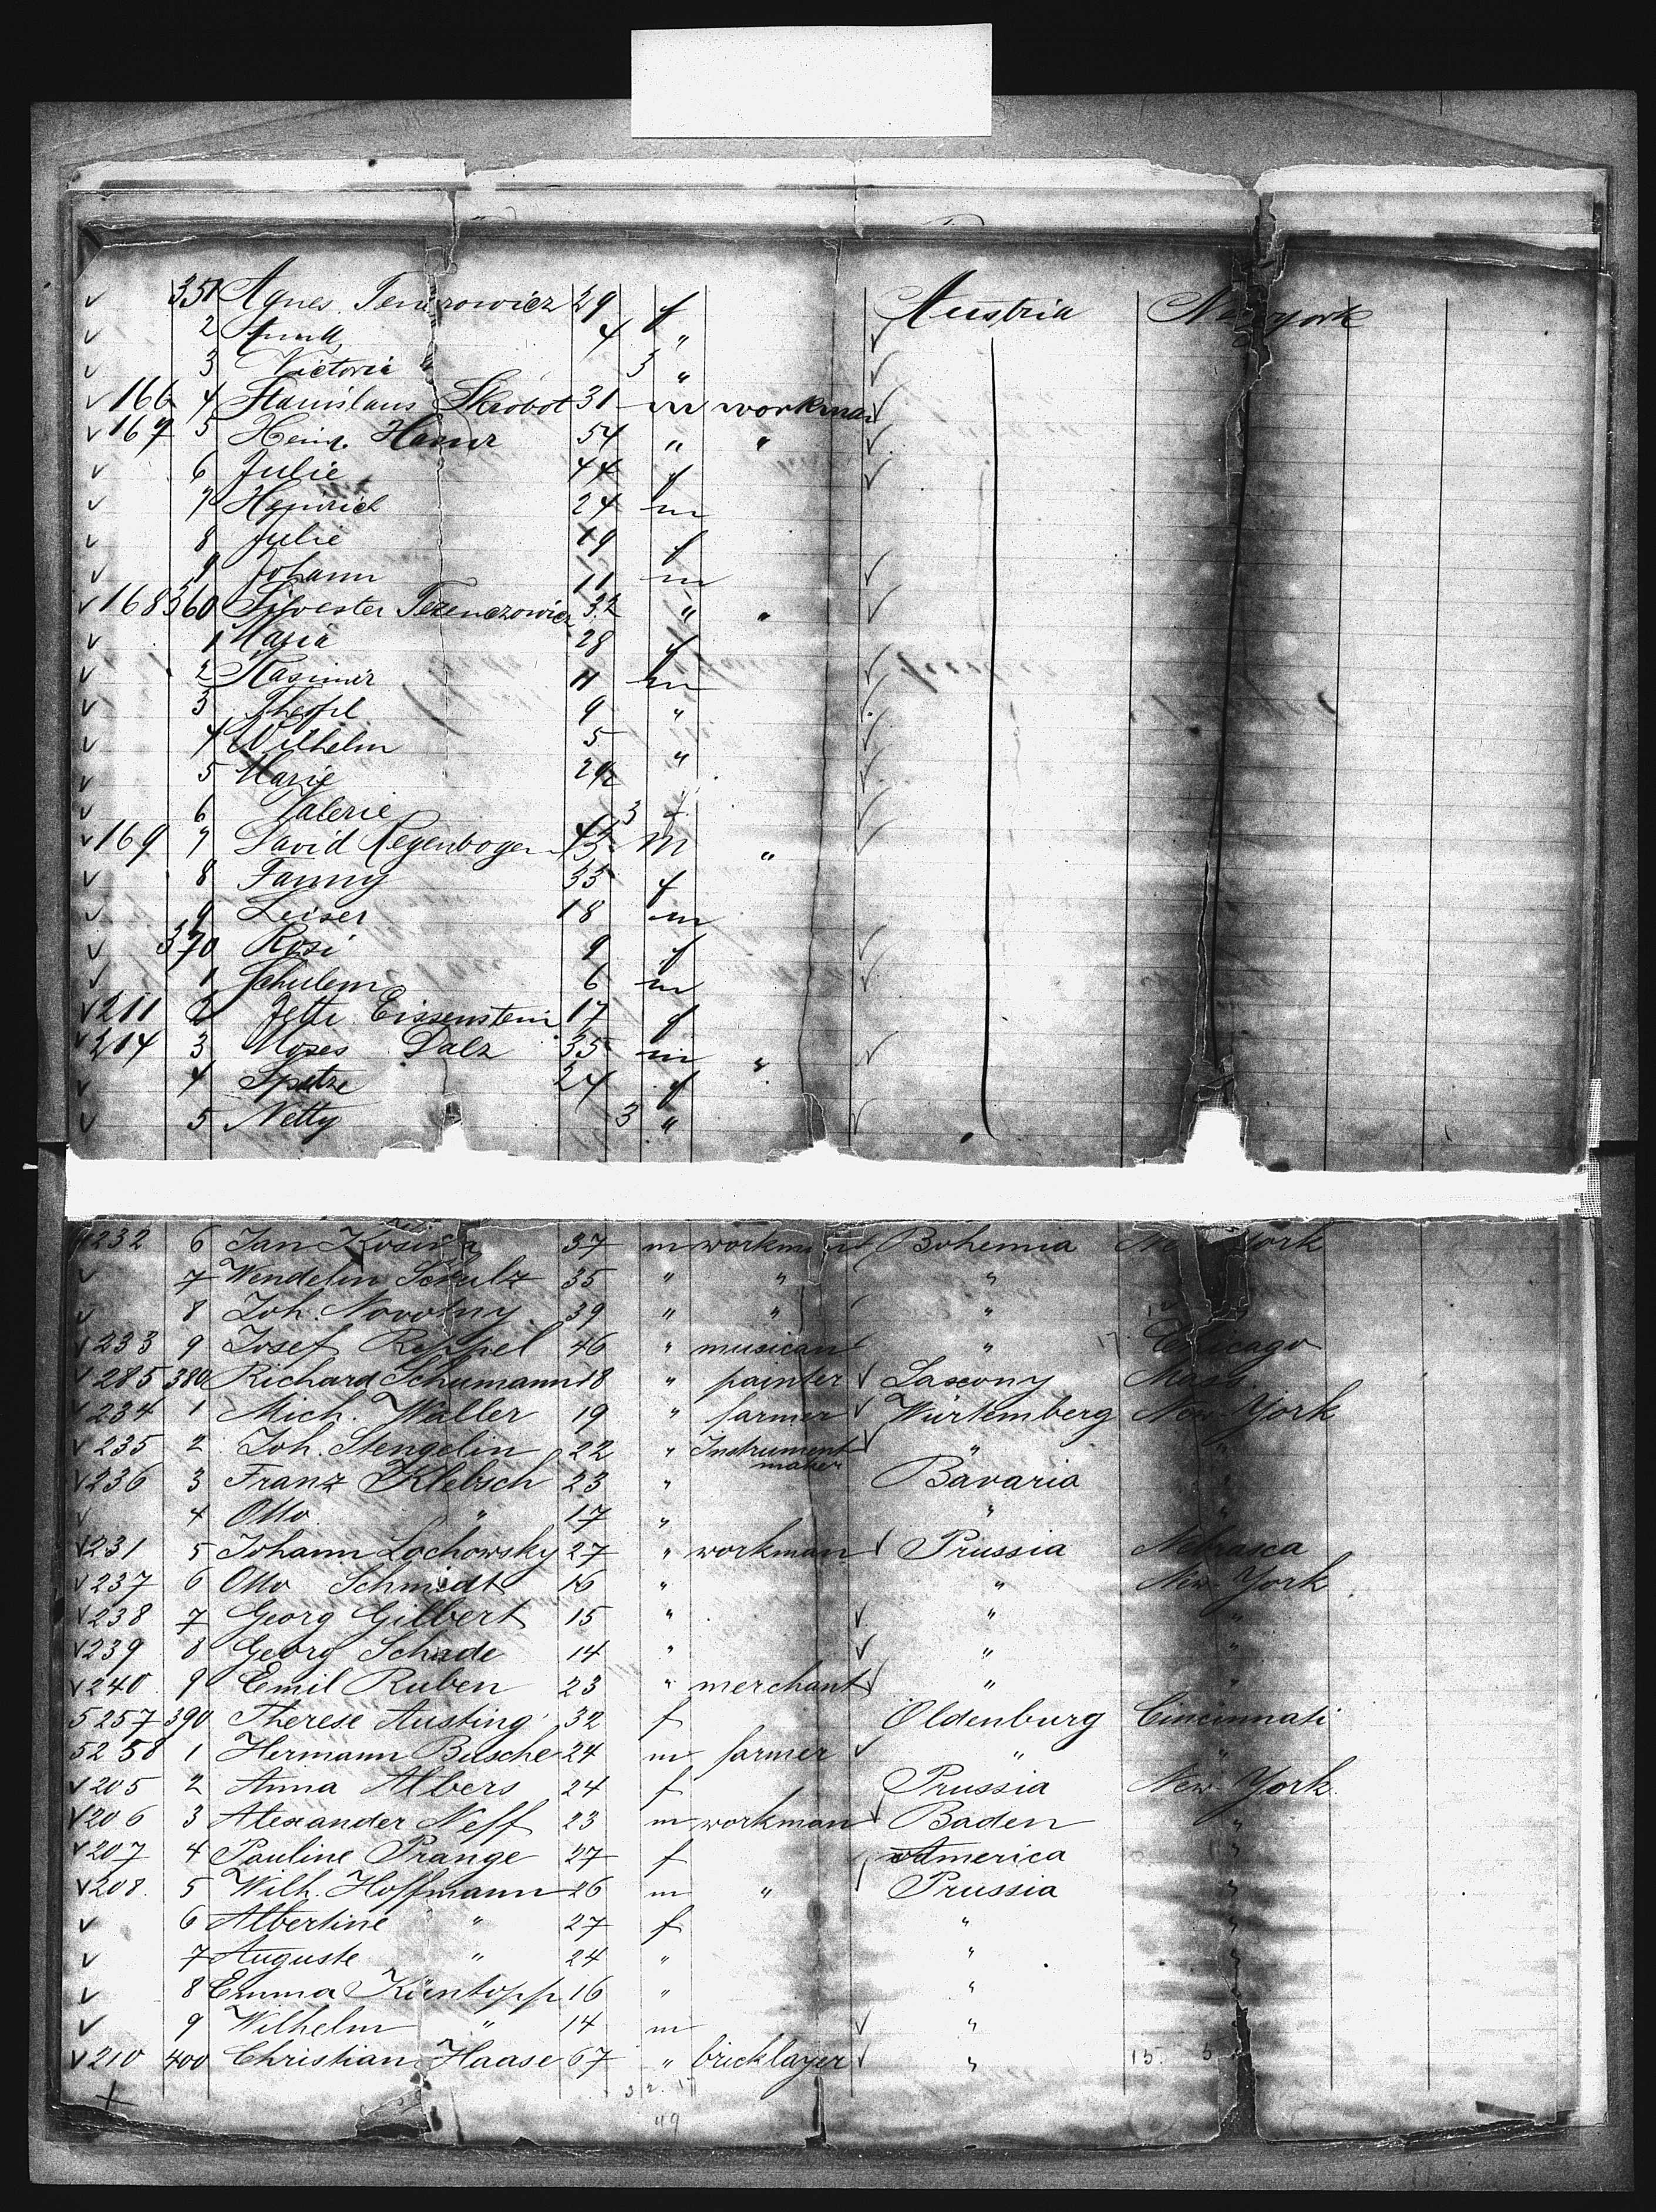 351 Agnes 29 f Austria New york
2 4 "
3 Victoria " 3 "
166 4 Stanislaus Skrobot 31 m workman
167 5 Heinr. 54 " "
6 Julie 44 f
7 Heinrich 24 m
8 Julie 19 f
9 Johann 11 m
168 360 Silvester Terenczowicz 32 " "
1 Maria 28 f
2 Kasimir 11 m
3 Theofil 9 "
4 Wilhelm 5 "
5 Marie
6 Valerie 3 f
169 7 David Regenbogen 45 m "
8 Fanny 33 f
9 Leiser 18 m
370 Rosi 9 f
1 Schulem 6 m
211 2 Jette Eissenstein 17 f
214 3 Moses Dalz 35 m "
4 24 f
5 Netty 3 "
232 6 Jan 37 m workman Bohemia New York
7 Wendelin Schulz 35 " " "
8 Joh. Novotny 39 " " "
233 9 Josef Reppel 46 " musican " Chicago
285 380 Richard Schumann 18 " painter Saxony Mass.
234 1 Mich. Waller 19 " farmer Würtemberg New-York
235 2 Joh. Stengelin 22 " Instrument maker " "
236 3 Franz Klebsch 23 " Bavaria "
4 Otto " 17 " " "
231 5 Johann Lochowsky 27 " workman Prussia Nebrasca
237 6 Otto Schmidt 16 " " New-York
238 7 Georg Gilbert 15 " " "
239 8 Georg Schade 14 " " "
240 9 Emil Ruben 23 " merchant " "
5257 390 Therese Austing 32 f Oldenburg Cincinnati
5258 1 Hermann Busche 24 m farmer " "
205 2 Anna Albers 24 f Prussia New-York
206 3 Alexander Neff 23 m workman Baden "
207 4 Pauline Prange 27 f America "
208 5 Wilh. Hoffmann 26 m " Prussia "
6 Albertine " 27 f " "
7 Auguste " 24 " " "
8 Emma Küntopp 16 " "
9 Wilhelm " 14 m "
210 400 Christian Haase 67 " bricklayer " 15 5
49